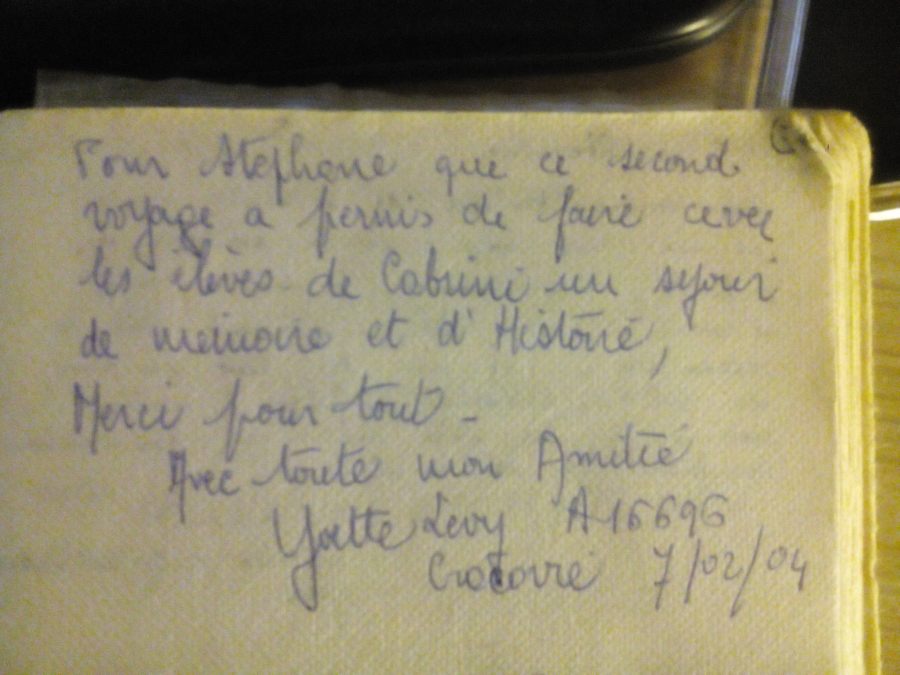 Pour Stéphane que ce second
voyage a permis de faire avec
les élèves de Cabrini un séjour
de mémoire et d'Histoire,
Merci pour tout -
Avec toute mon Amitié
Yvette Levy A16696
Cracovie 7/02/04